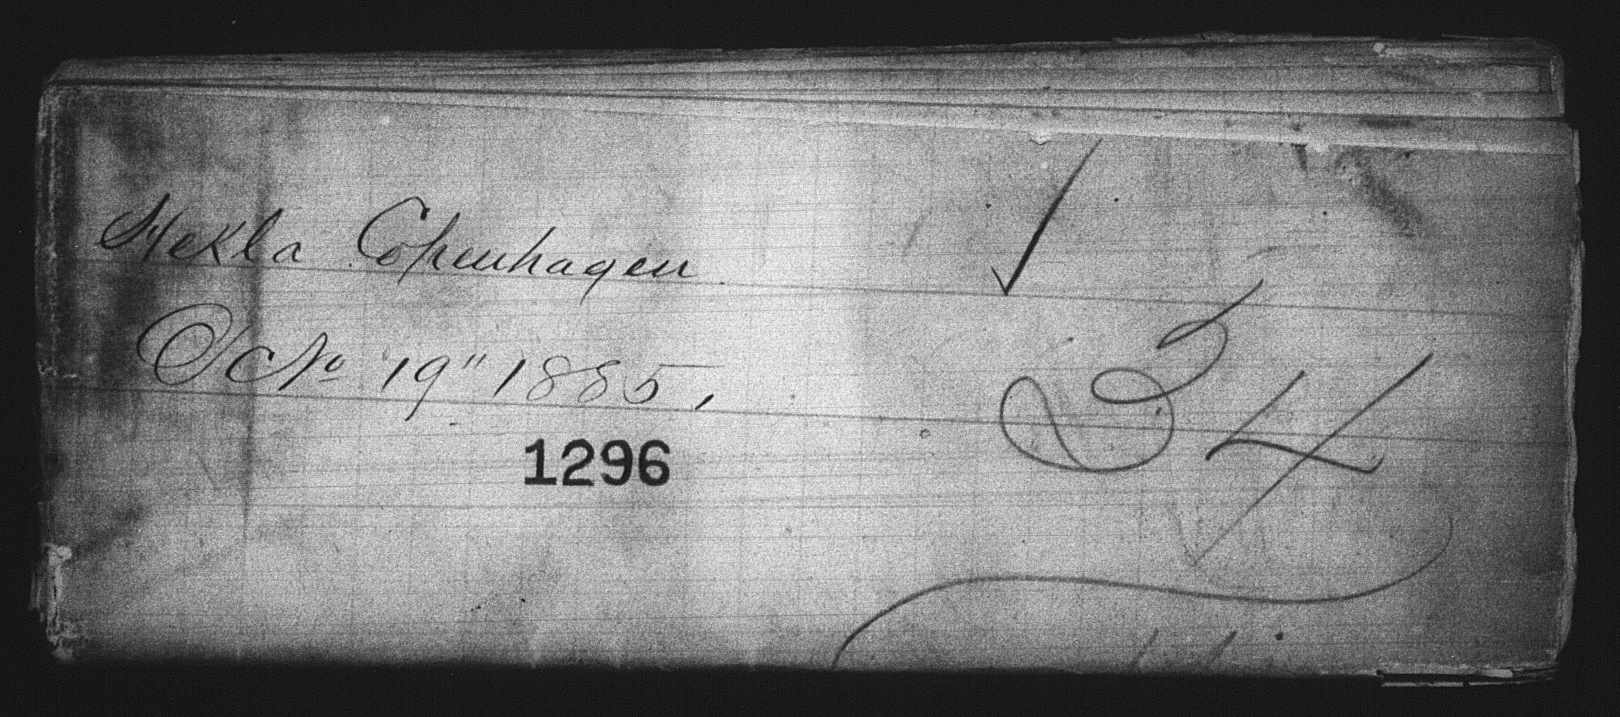 Hekla Copenhagen
Octo 19" 1885,
1296
34